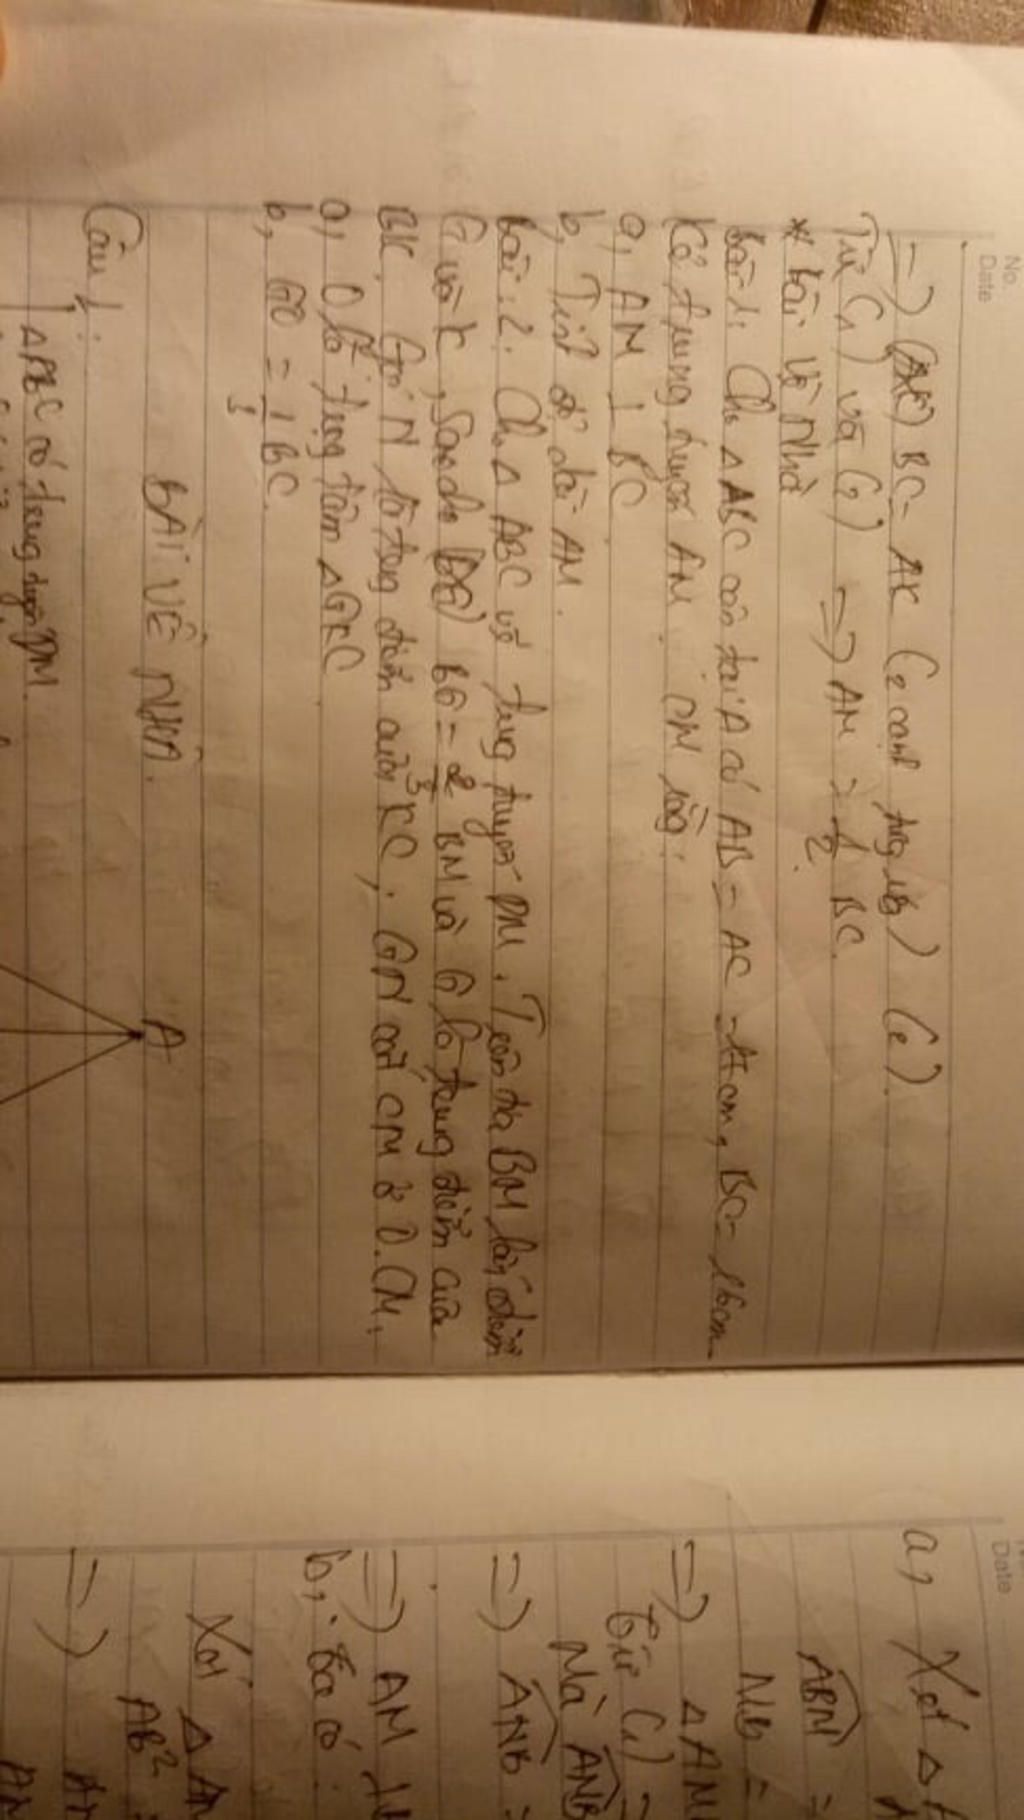 No.
Date
=) BC = AK (2 cạnh tương ứng) (2)
Từ (1) và (2) =) AM = 1/2 BC.
* Bài Về Nhà
Bài 1: Cho △ABC cân tại A có AB = AC = cm, BC = 16cm
Kẻ trung tuyến AM. CM rằng:
a, AM ⊥ BC
b, Tính độ dài AM.
Bài 2: Cho △ABC vẽ trung tuyến BM. Trên tia BM lấy điểm
G và K, sao cho BG = 2/3 BM và G là trung điểm của
BK. Gọi N là trung điểm của KC, GN cắt CM ở O. CM:
a, O là trọng tâm △GKC
b, GO = 1/3 BC
BÀI VỀ NHÀ.
Câu 1:
A
△ABC có trung tuyến AM
Date
a, Xét △
ABM =
MB =
=) △AM
Từ (1) =
Mà AMB
=) AMB =
=) AM
b, Ta có:
Xét △
AB² =
=)